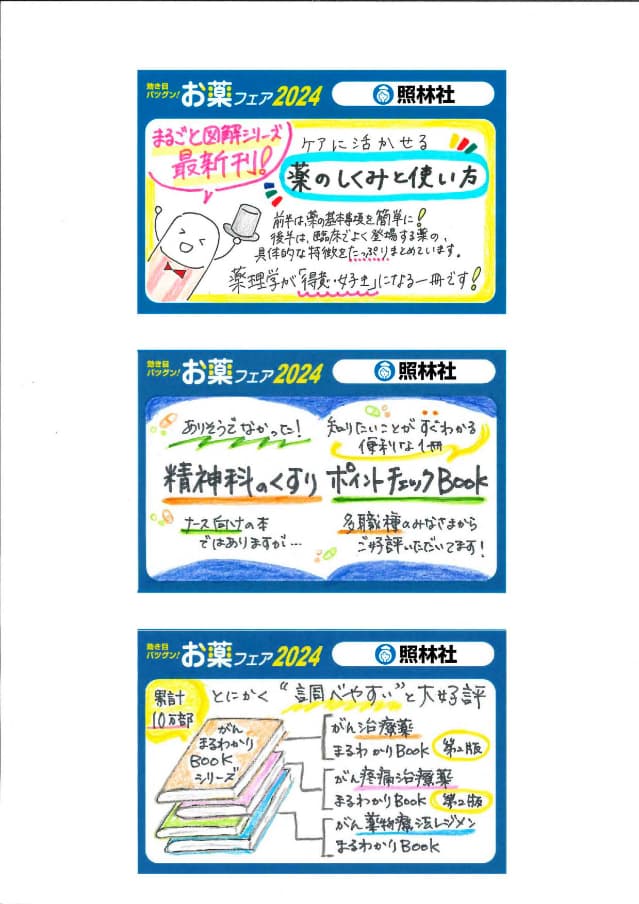 効き目
バツグン!
お薬フェア2024
照林社
まるごと図解シリーズ
最新刊!
ケアに活かせる
薬のしくみと使い方
前半は、薬の基本事項を簡単に!
後半は、臨床でよく登場する薬の、
具体的な特徴をたっぷりまとめています。
薬理学が「得意・好き」になる一冊です!
効き目
バツグン!
お薬フェア2024
照林社
ありそうでなかった!
精神科のくすり ポイントチェックBook
知りたいことがすぐわかる
便利な1冊
ナース向けの本
ではありますが…
多職種のみなさまから
ご好評いただいてます!
効き目
バツグン!
お薬フェア2024
照林社
累計
10万部
とにかく“調べやすい”と大好評
がん
まるわかり
BOOK
シリーズ
がん治療薬
まるわかりBook 第2版
がん疼痛治療薬
まるわかりBook 第2版
がん薬物療法レジメン
まるわかりBook